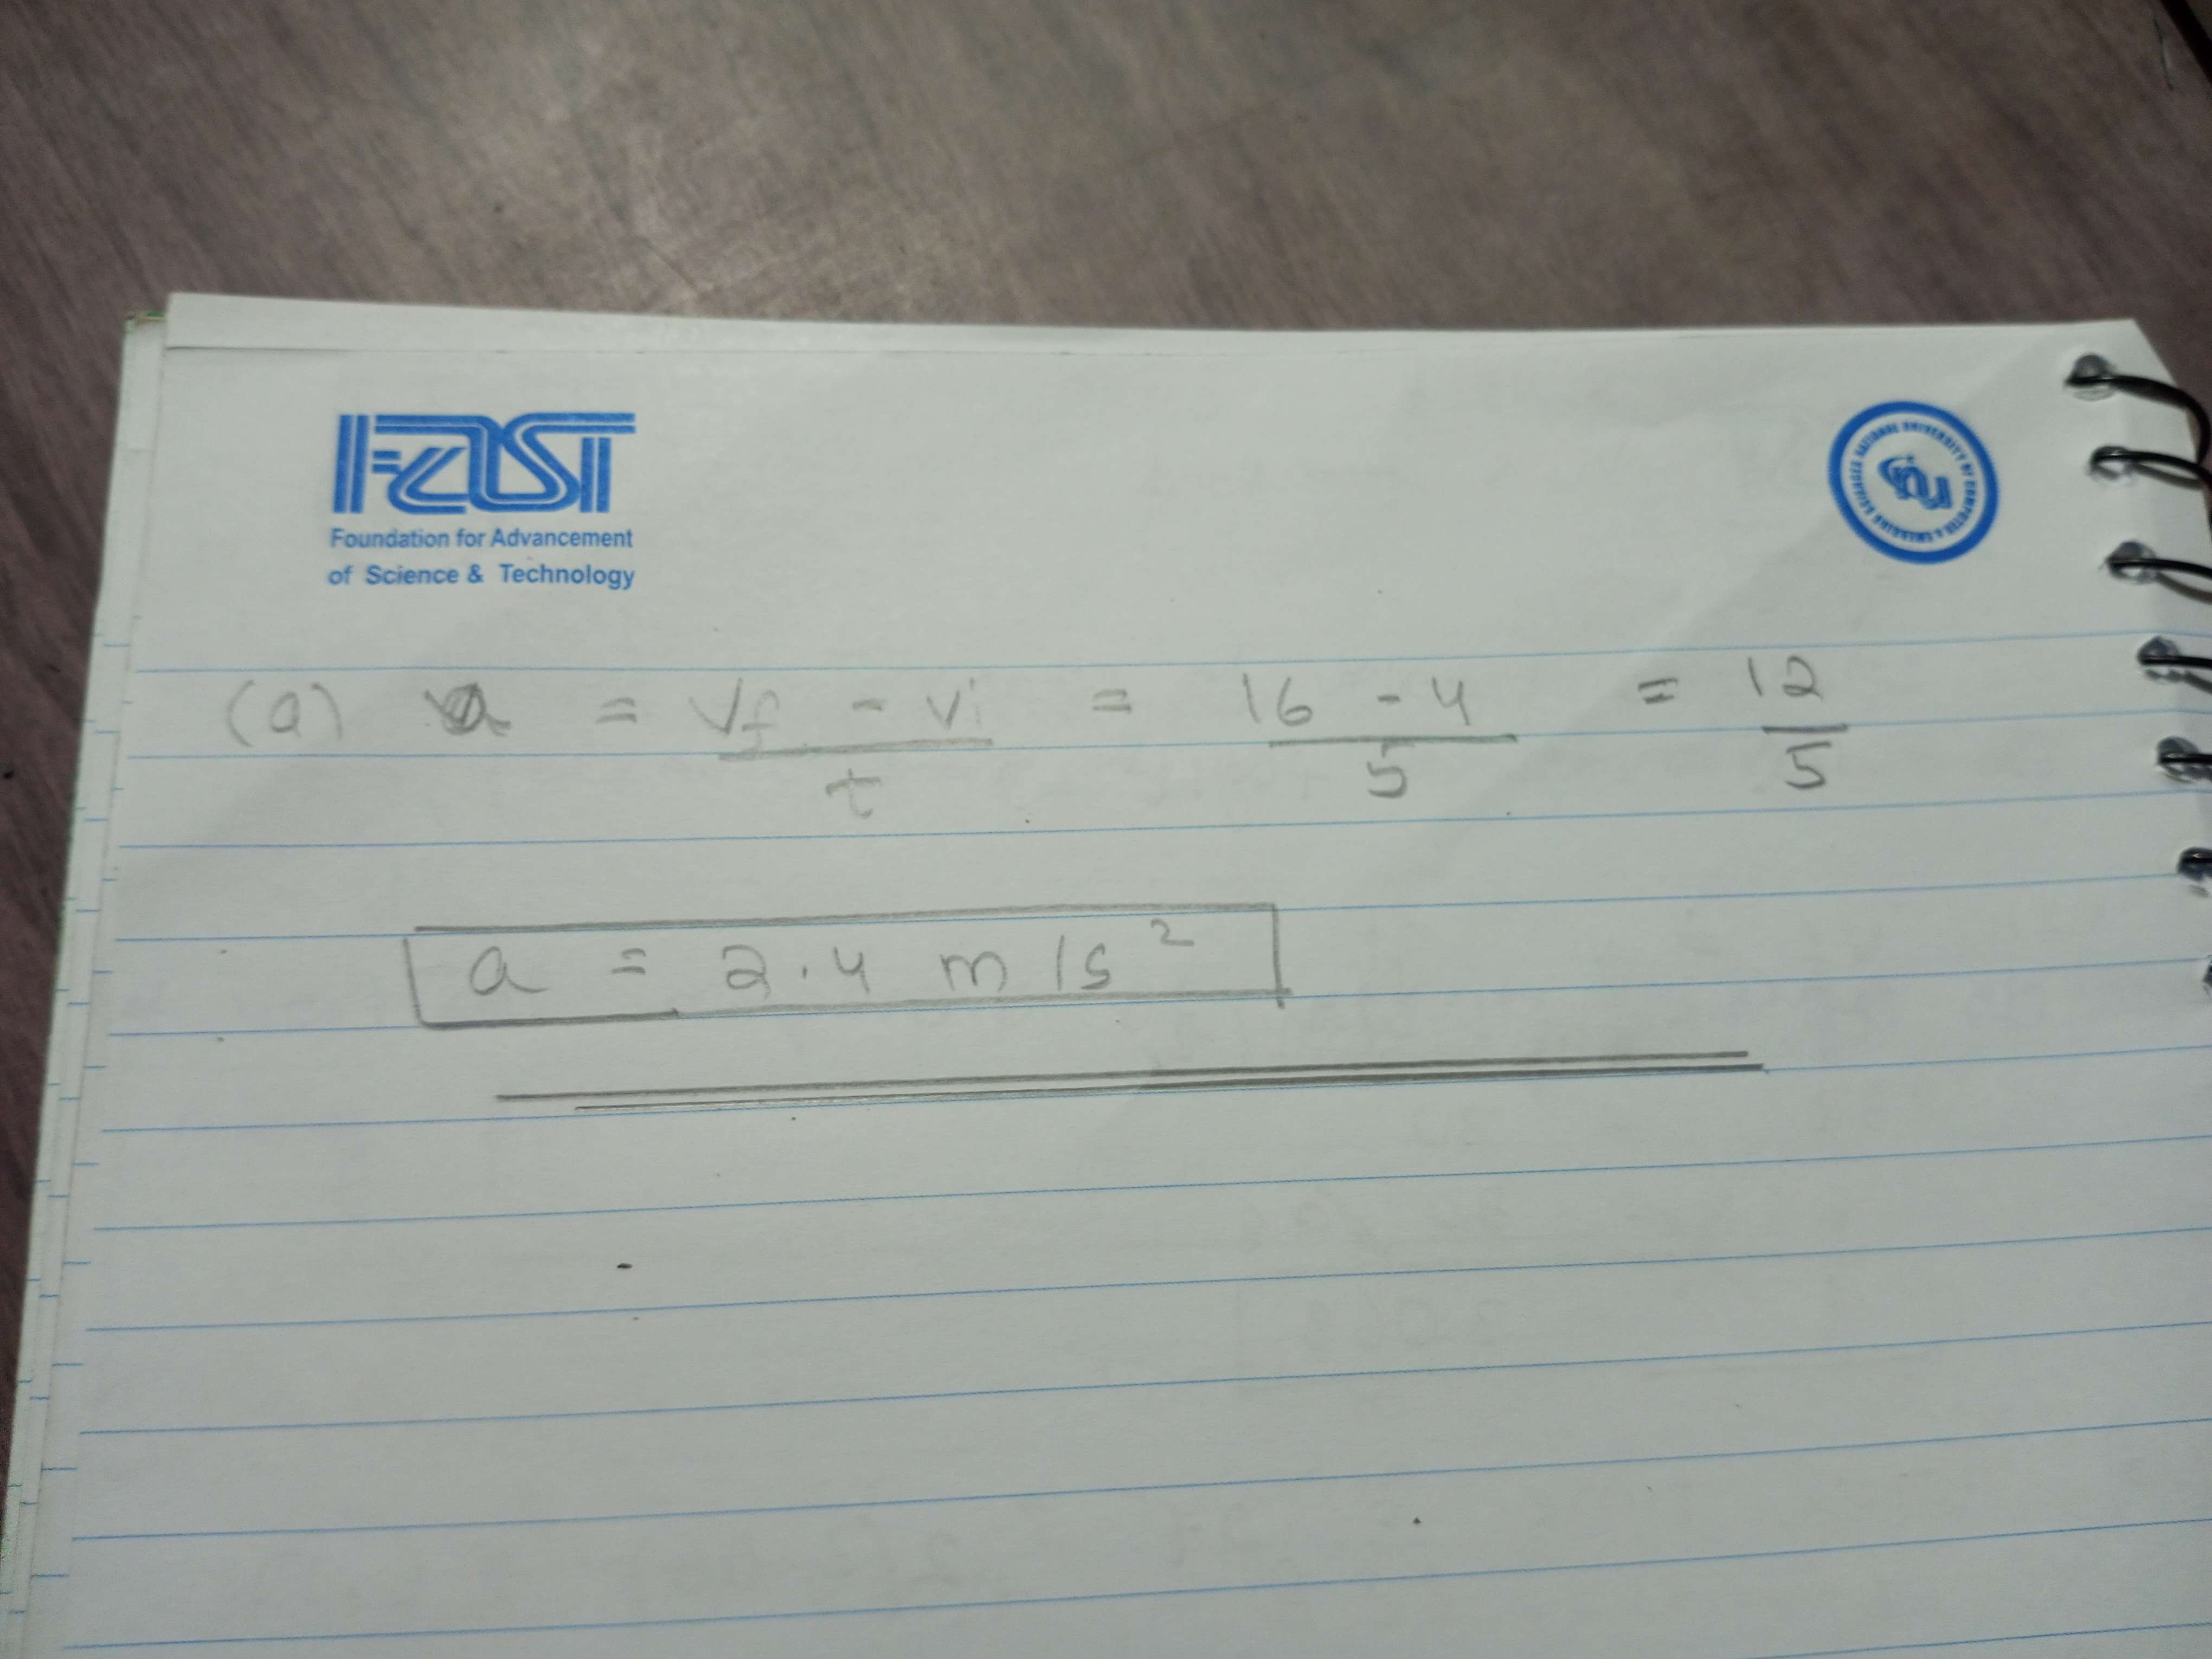 FAST
Foundation for Advancement
of Science & Technology
NATIONAL UNIVERSITY OF COMPUTER & EMERGING SCIENCES
nu
(a) a = Vf - Vi = 16 - 4 = 12
t 5 5
a = 2.4 m/s²